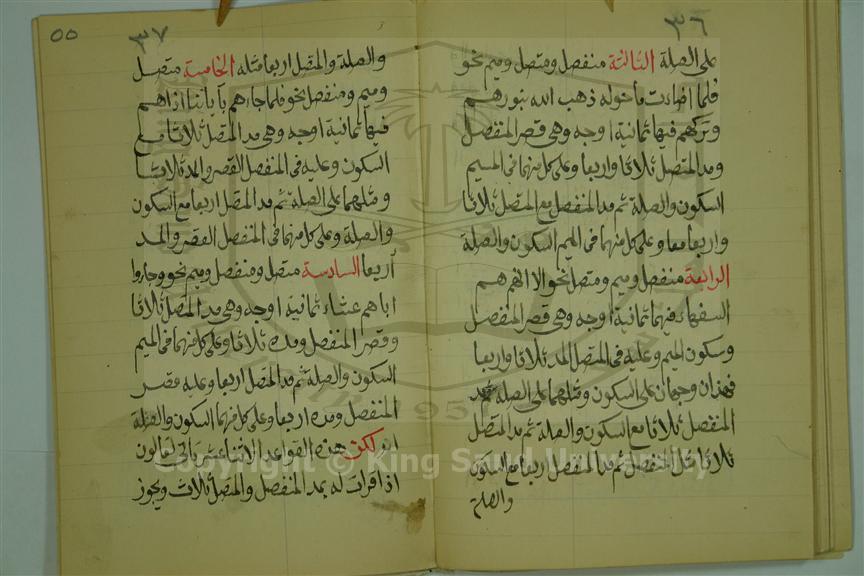 ٣٦
على الصلة الثالثة منفصل ومتصل وميم نحو
فلما اضاءت ماحوله ذهب الله بنورهم
وتركهم فيها ثمانية اوجه وهي قصر المنفصل
ومد المتصل ثلاثا واربعا وعلى كل منهما في الميم
السكون والصلة ثم مد المنفصل مع المتصل ثلاثا
واربعا معا وعلى كل منهما في الميم السكون والصلة
الرابعة منفصل وميم ومتصل نحو الا انهم هم
السفهاء فيهما ثمانية اوجه وهي قصر المنفصل
وسكون الميم وعليه في المتصل المد ثلاثا واربعا
فهذان وجهان على السكون ومثلهما على الصلة ثم مد
المنفصل ثلاثا مع السكون والصلة ثم مد المتصل
ثلاثا مثل المنفصل ثم مد المنفصل اربعا مع السكون
والصلة
٥٥
٣٧
والصلة والمتصل اربعا مثله الخامسة متصل
وميم ومنفصل نحو فلما جاءهم بآياتنا اذا هم
فيها ثمانية اوجه وهي مد المتصل ثلاثا مع
السكون وعليه في المنفصل القصر والمد ثلاثا
ومثلهما على الصلة ثم مد المتصل اربعا مع السكون
والصلة وعلى كل منهما في المنفصل القصر والمد
اربعا السادسة متصل ومنفصل وميم نحو وجاءوا
اباهم عشاء ثمانية اوجه وهي مد المتصل ثلاثا
وقصر المنفصل ومده ثلاثا وعلى كل منهما في الميم
السكون والصلة ثم مد المتصل اربعا وعليه قصر
المنفصل ومده اربعا وعلى كل منهما السكون والصلة
لكن هذه القواعد الاثنا عشر تأتي لقالون
اذا قرات له بمد المنفصل والمتصل ثلاث ويجوز
Copyright © King Saud University